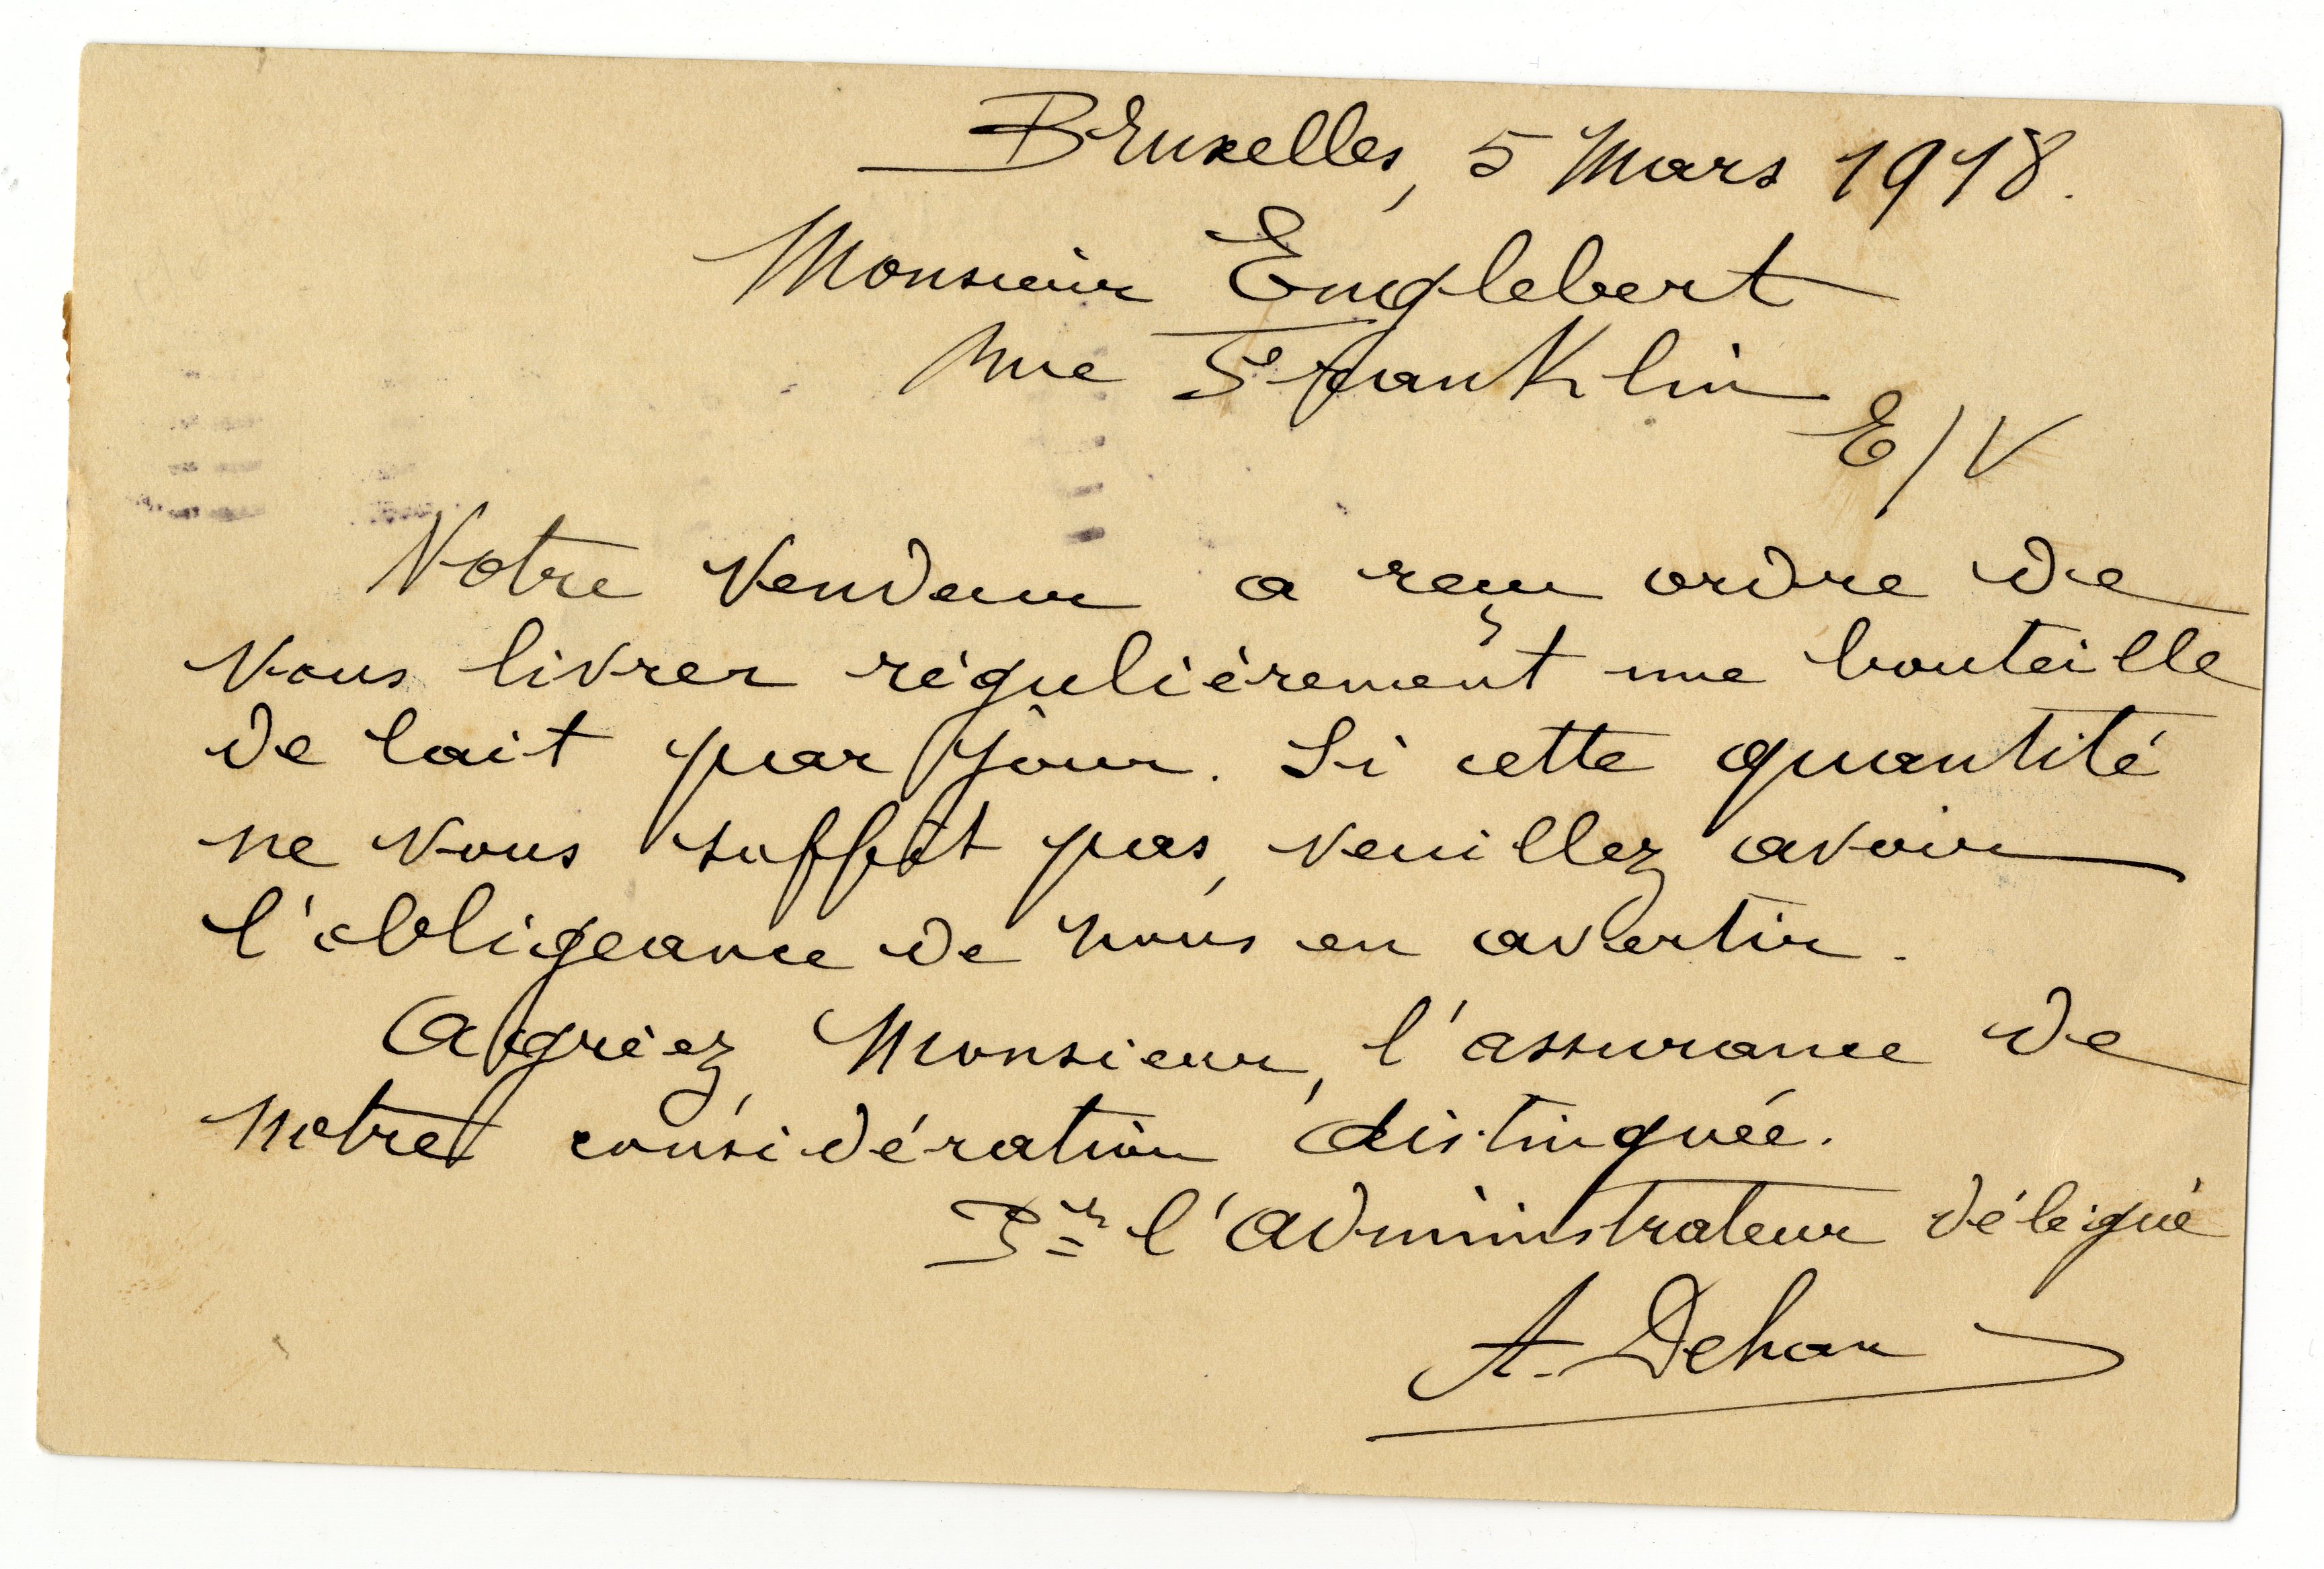 Bruxelles, 5 Mars 1918.
Monsieur Englebert
rue Franklin
E/V
Notre vendeur a reçu ordre de
vous livrer régulièrement une bouteille
de lait par jour. Si cette quantité
ne vous suffit pas, veuillez avoir
l'obligeance de nous en avertir.
Agréez, Monsieur, l'assurance de
notre considération distinguée.
Pr l'administrateur délégué
A. Dehan